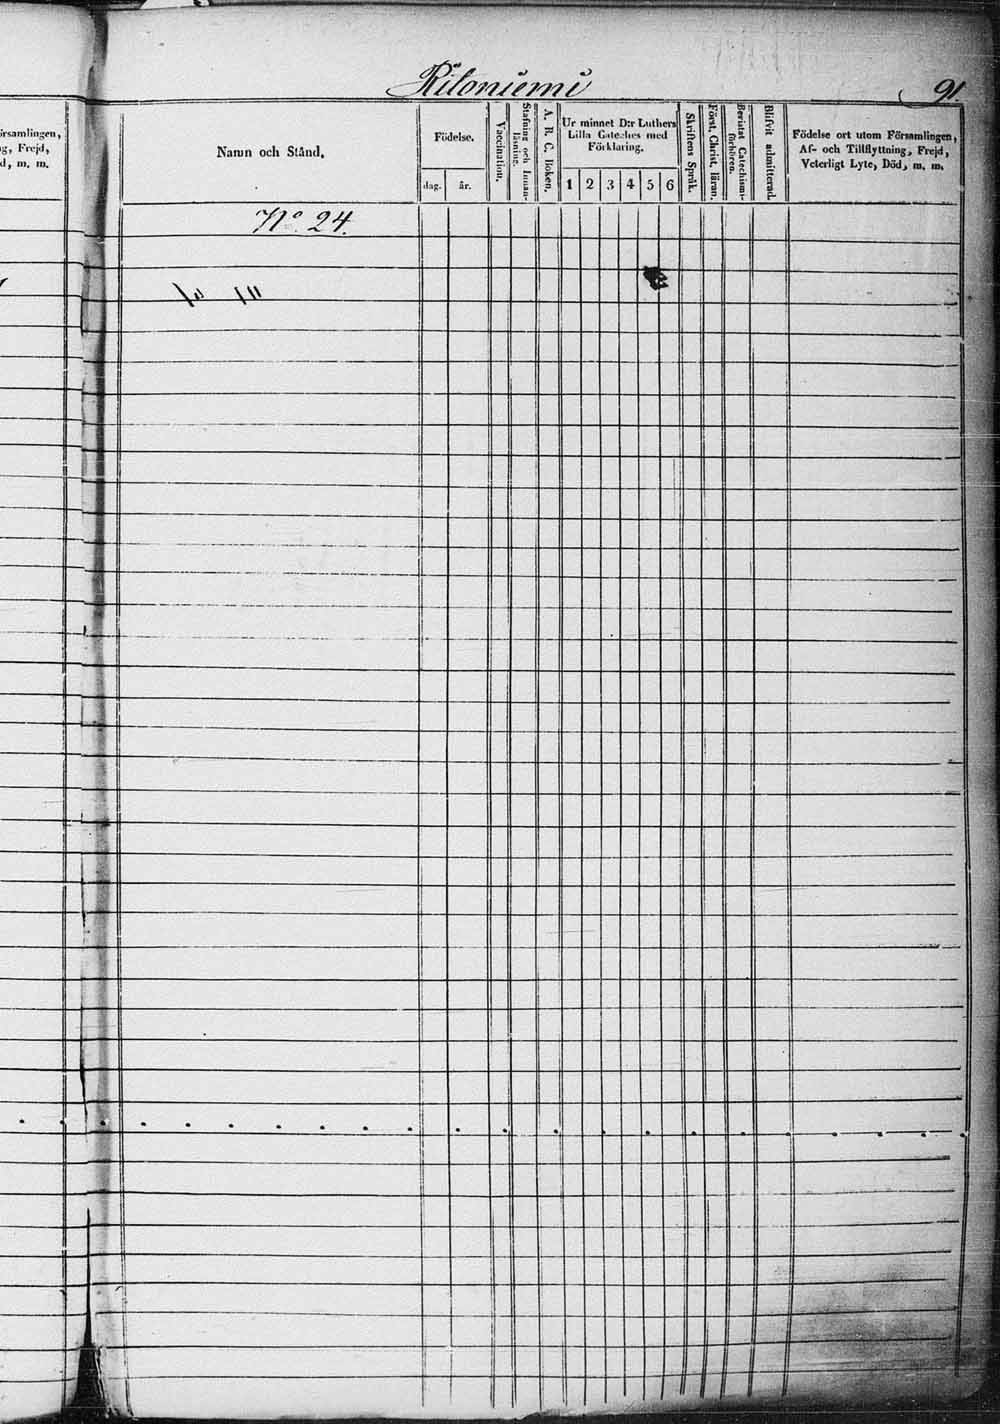 Ritoniemi
91.
örsamlingen,
g, Frejd,
d, m. m.
Namn och Stånd.
Födelse.
dag. år.
Vaccination.
Stafning och Innan-
läsning.
A. B. C. Boken.
Ur minnet D:r Luthers
Lilla Cateches med
Förklaring.
1 2 3 4 5 6
Skriftens Språk.
Först. Christ. läran.
Bevistat Catechismi-
förhören.
Blifvit admitterad.
Födelse ort utom Församlingen,
Af- och Tillflyttning, Frejd,
Veterligt Lyte, Död, m. m.
No. 24.